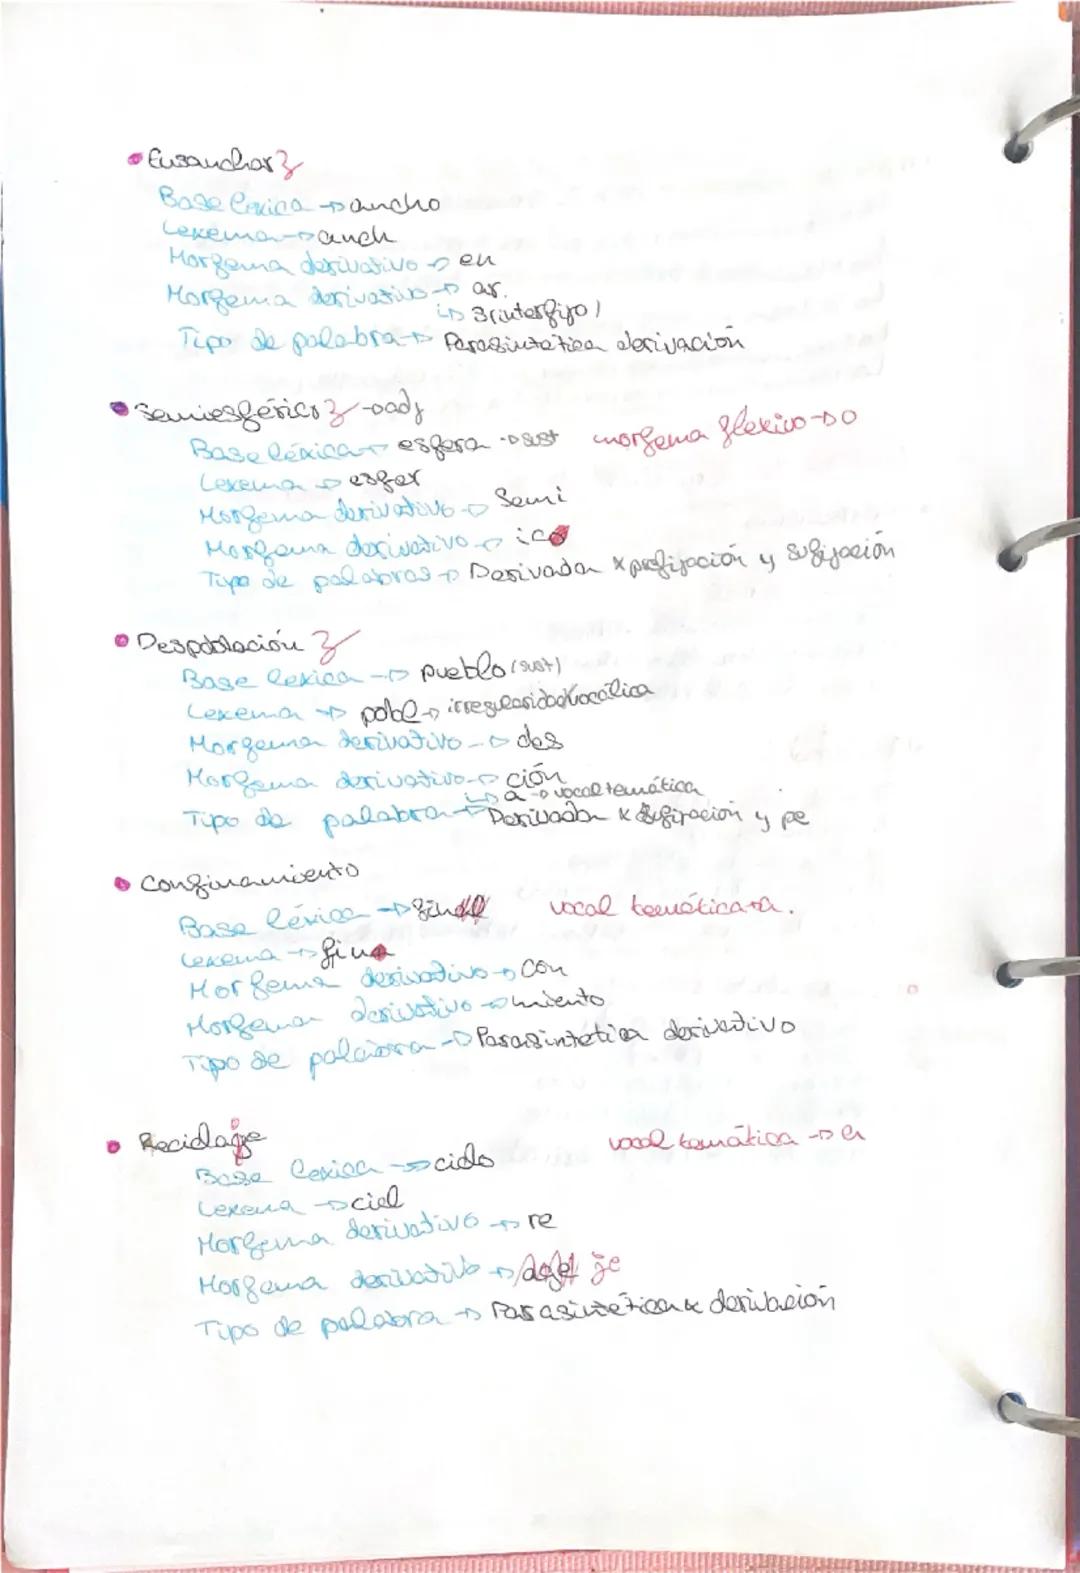 • Ensanchar
Base léxica → ancho
Lexema → anch
Morfema derivativo → en
Morfema derivativo → ar.
↳ s(interfijo)
Tipo de palabra → Parasintética derivación
• Semiesférico → adj
Base léxica → esfera → sust morfema flexivo → o
Lexema → esfer
Morfema derivativo → Semi
Morfema derivativo → ico
Tipo de palabras → Derivada x prefijación y sufijación
• Despoblación
Base lexica → pueblo (sust)
Lexema → pobl → irregularidad vocálica
Morfema derivativo → des
Morfema derivativo → ción
↳ a → vocal temática
Tipo de palabra → Derivada x sufijación y pe
• Confinamiento
Base léxica → fin vocal temática → a.
Lexema → fin
Morfema derivativo → con
Morfema derivativo → miento
Tipo de palabra → Parasintetica derivativo
• Reciclaje vocal temática → a
Base lexica → ciclo
Lexema → cicl
Morfema derivativo → re
Morfema derivativo → je
Tipo de palabra → Parasintética x derivación